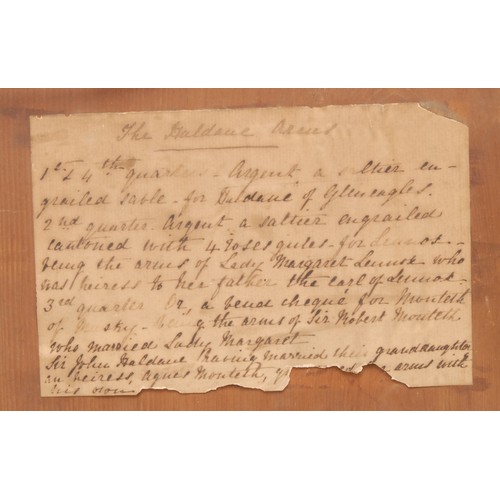 The Haldane Arms
1st & 4th quarters - Argent a saltier en-
grailed sable - for Haldane of Gleneagles.
2nd quarter. Argent a saltier engrailed
cantoned with 4 roses gules - for Lennox -
being the arms of Lady Margaret Lennox who
was heiress to her father the Earl of Lennox -
3rd quarter Or, a bend cheque for Monteth
of sky - being the arms of Sir Robert Monteth
who married Lady Margaret
Sir John Haldane having married their granddaughter
an heiress, Agnes Monteth, arms with
his own